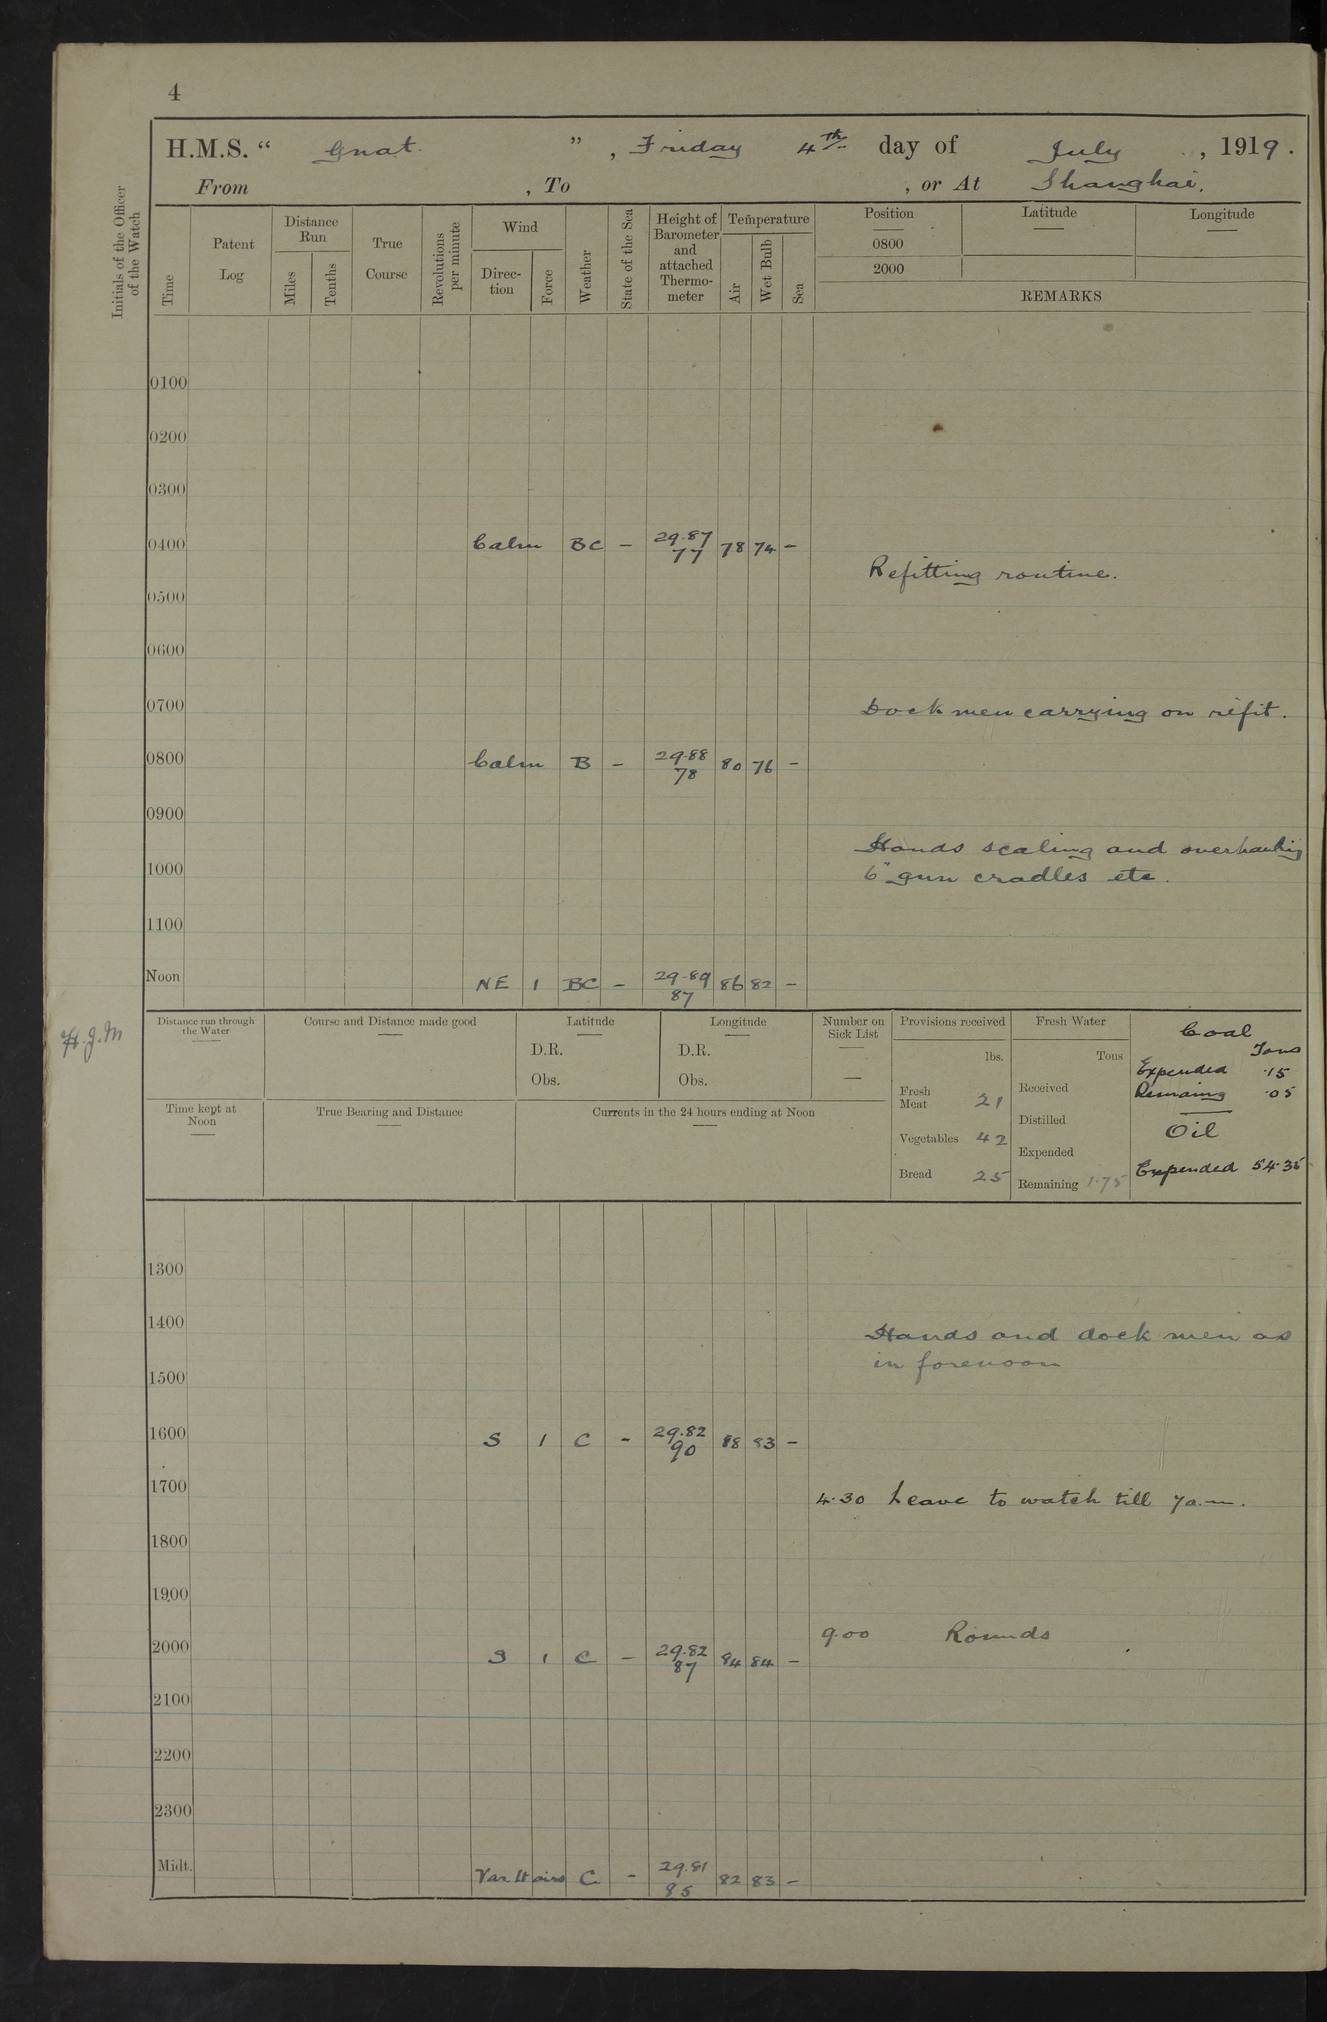 4
H.M.S. “ Gnat ” , Friday 4th day of July , 1919.
From , To , or At Shanghai.
Initials of the Officer of the Watch
Time
Patent Log
Distance Run
Miles
Tenths
True Course
Revolutions per minute
Wind
Direc-tion
Force
Weather
State of the Sea
Height of Barometer and attached Thermo-meter
Temperature
Air
Wet Bulb
Sea
Position
Latitude
Longitude
0800
2000
REMARKS
0100
0200
0300
0400 Calm BC – 29.87 77 78 74 –
Refitting routine.
0500
0600
0700 Dock men carrying on refit.
0800 Calm B – 29.88 78 80 76 –
0900
Hands scaling and overhauling
1000 6" gun cradles etc.
1100
Noon NE 1 BC – 29.89 87 86 82 –
H.J.M
Distance run through the Water
Course and Distance made good
Latitude
D.R.
Obs.
Longitude
D.R.
Obs.
Number on Sick List
—
Provisions received
lbs.
Fresh Meat 21
Vegetables 42
Bread 25
Fresh Water
Tons
Received
Distilled
Expended
Remaining 1.75
Coal
Tons
Expended .15
Remaing .05
Oil
Expended 54.35
Time kept at Noon
True Bearing and Distance
Currents in the 24 hours ending at Noon
1300
1400 Hands and dock men as
in forenoon
1500
1600 S 1 C – 29.82 90 88 83 –
1700 4.30 Leave to watch till 7a.m.
1800
1900
9.00 Rounds
2000 S 1 C – 29.82 87 84 84 –
2100
2200
2300
Midt. Var lt airs C – 29.81 85 82 83 –